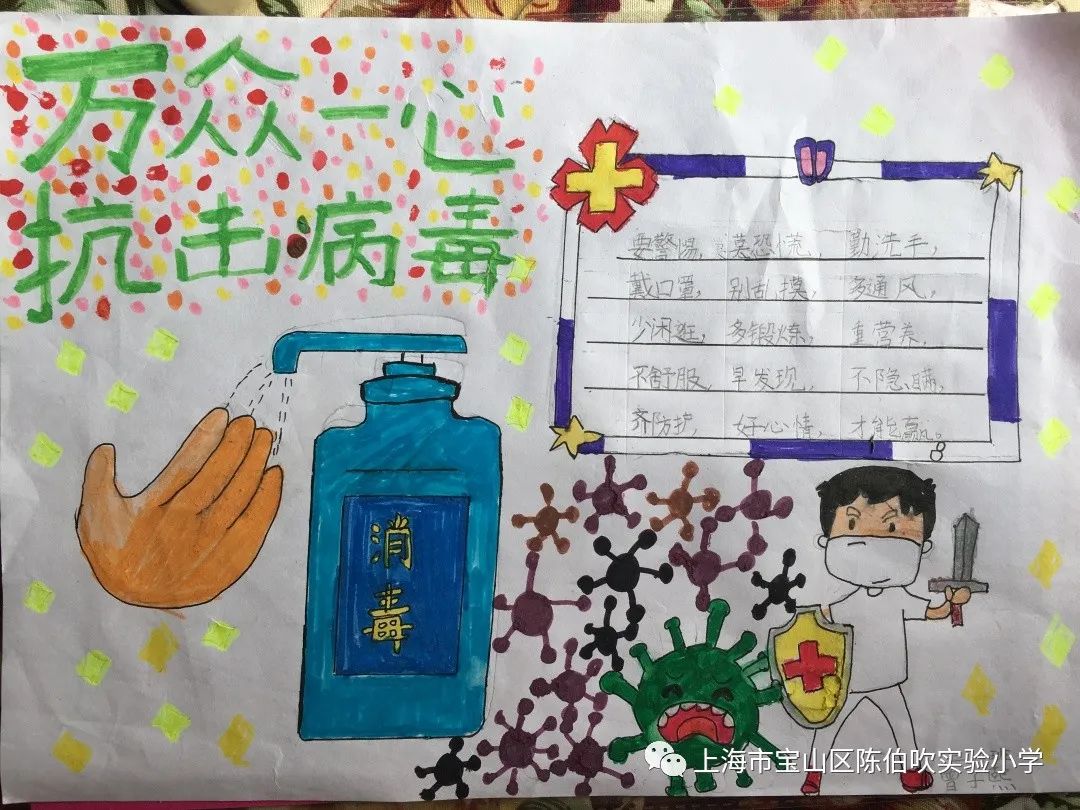 万众一心
抗击病毒
要警惕，莫恐慌，勤洗手，
戴口罩，别乱摸，多通风，
少闲逛，多锻炼，重营养，
不舒服，早发现，不隐瞒，
齐防护，好心情，才能赢。
消
毒
上海市宝山区陈伯吹实验小学